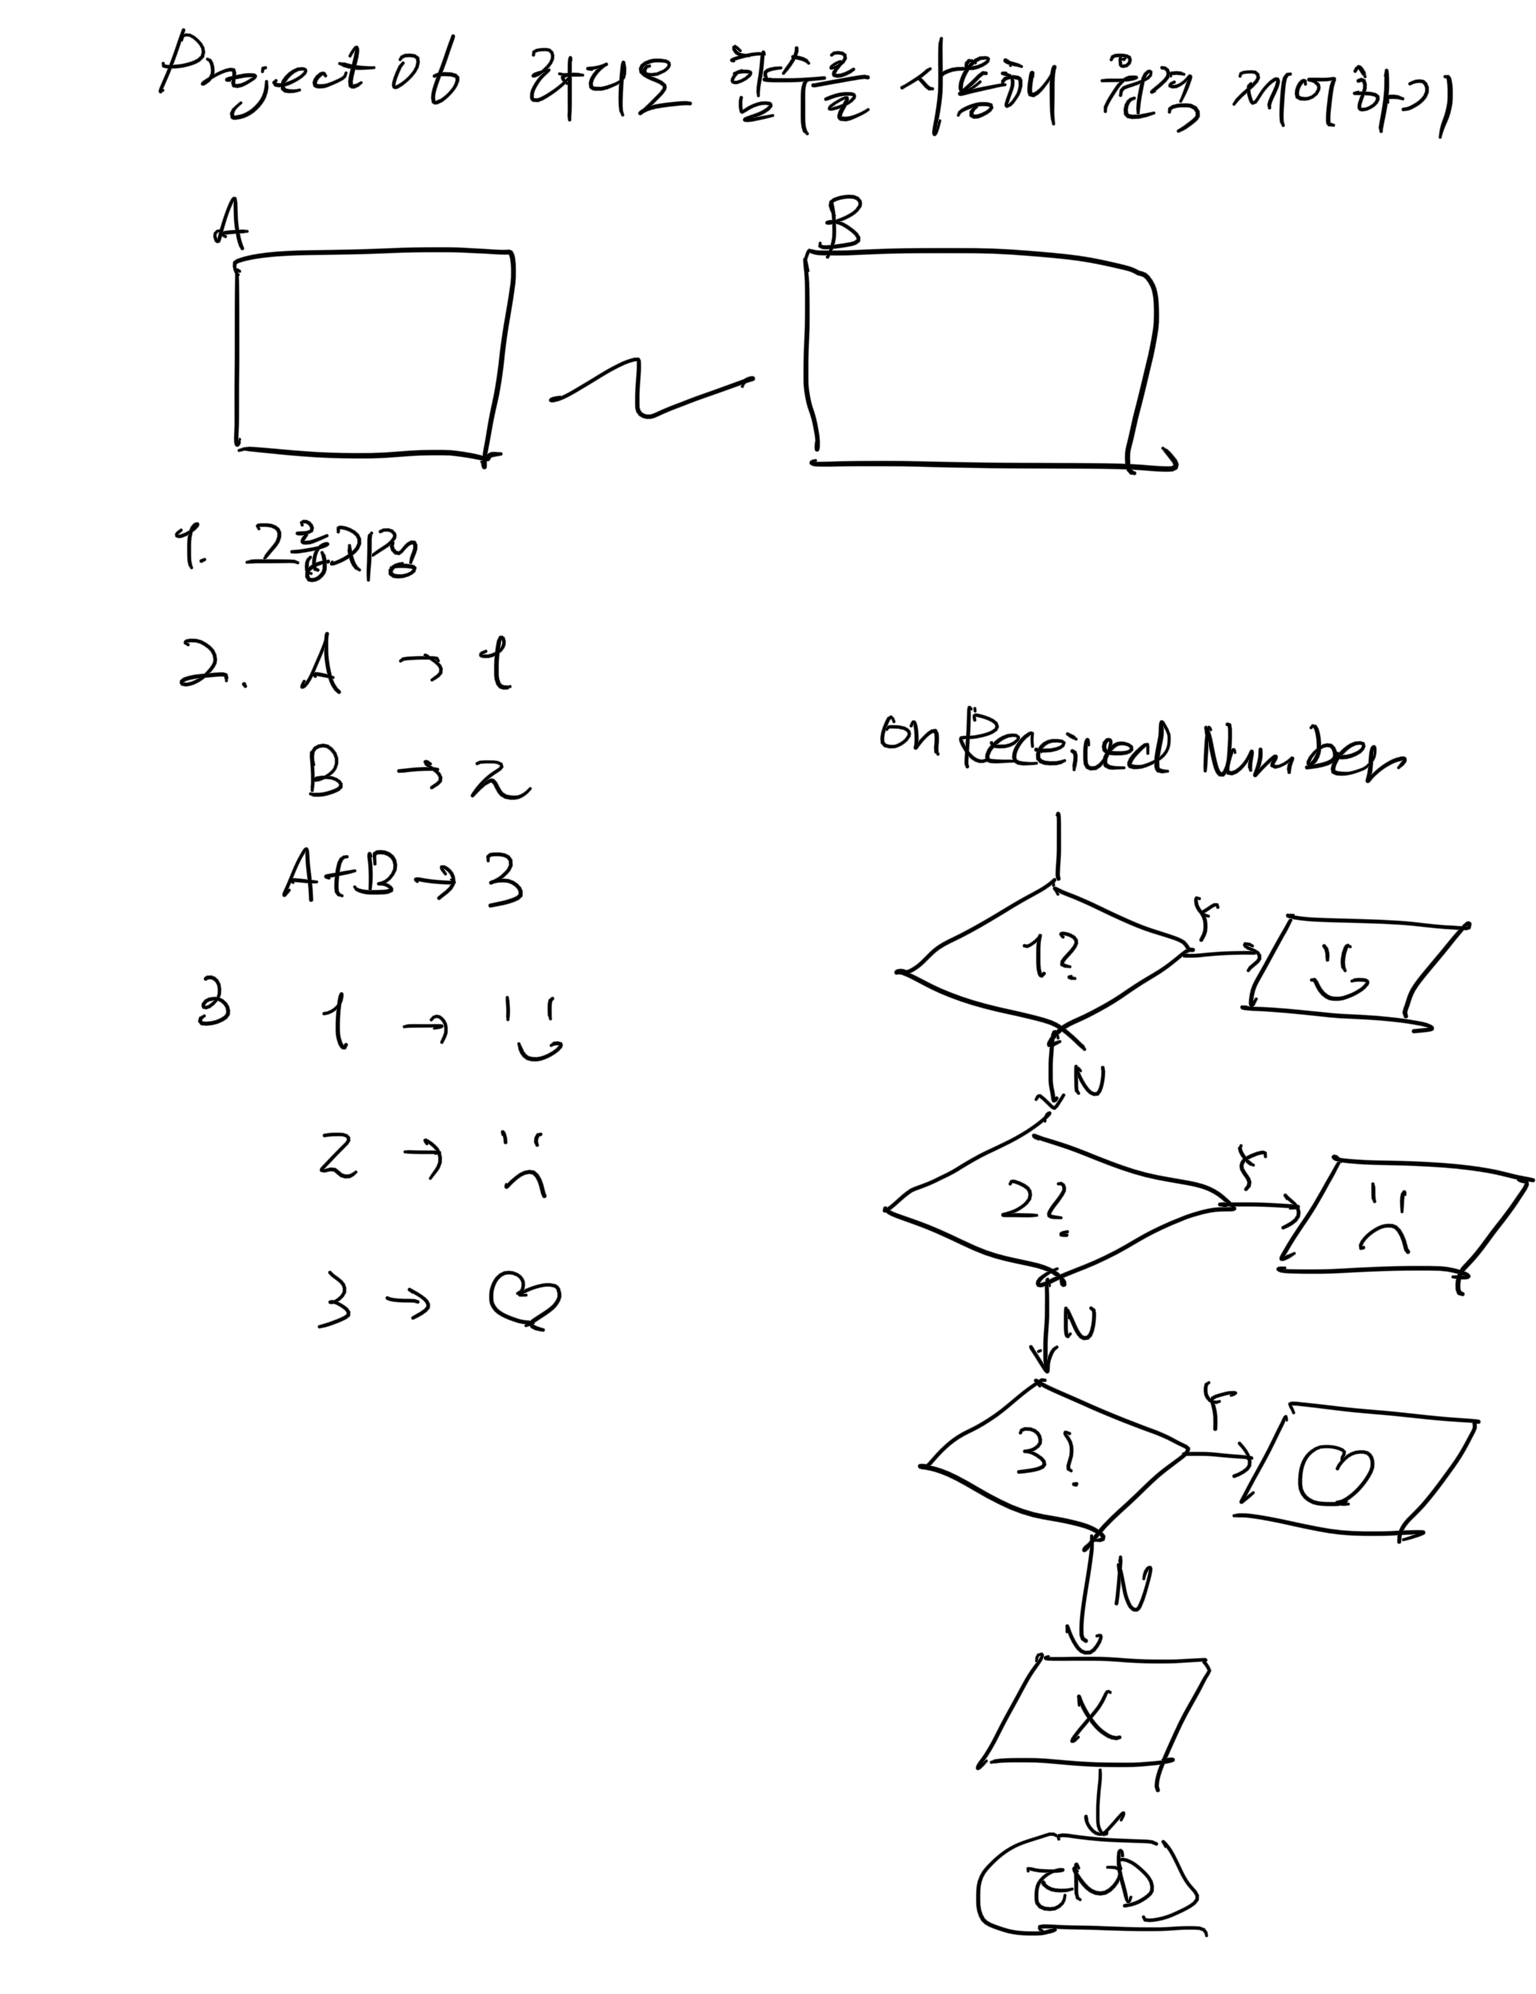 Project 06 라디오 함수를 사용해 원격 제어하기
A
B
1. 그룹지정
2. A → 1
B → 2
A+B → 3
3 1 →
2 →
3 →
on Received Number
1?
Y
N
2?
Y
N
3?
Y
N
X
END